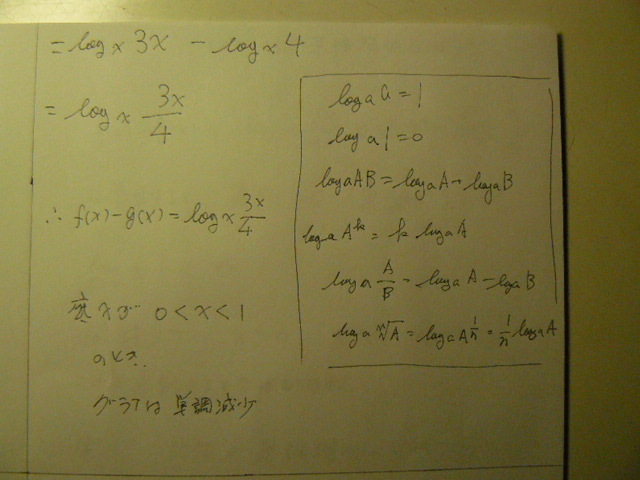 = log x 3x - log x 4
= log x 3x/4
∴ f(x)-g(x) = log x 3x/4
x が 0 < x < 1
のとき
グラフは 単調減少
log a a = 1
log a 1 = 0
log a AB = log a A + log a B
log a A^k = k log a A
log a A/B = log a A - log a B
log a ⁿ√A = log a A^(1/n) = 1/n log a A